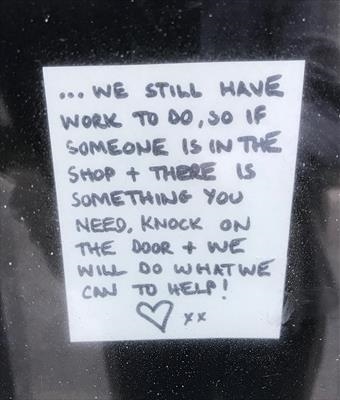 ... WE STILL HAVE
WORK TO DO, SO IF
SOMEONE IS IN THE
SHOP + THERE IS
SOMETHING YOU
NEED, KNOCK ON
THE DOOR + WE
WILL DO WHAT WE
CAN TO HELP!
♡ xx